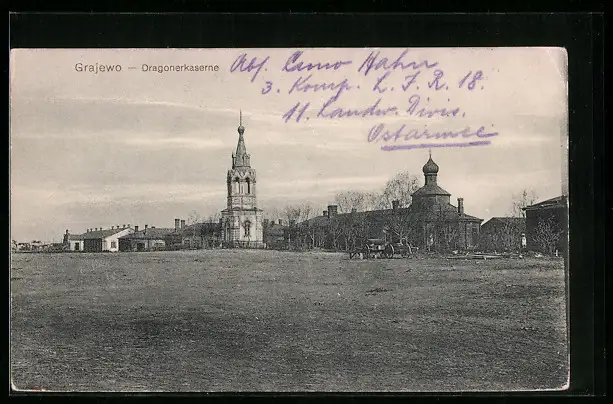 Grajewo — Dragonerkaserne
Abs. Cuno Hahn
3. Komp. L. I. R. 18.
11. Landw. Divis.
Ostarmee